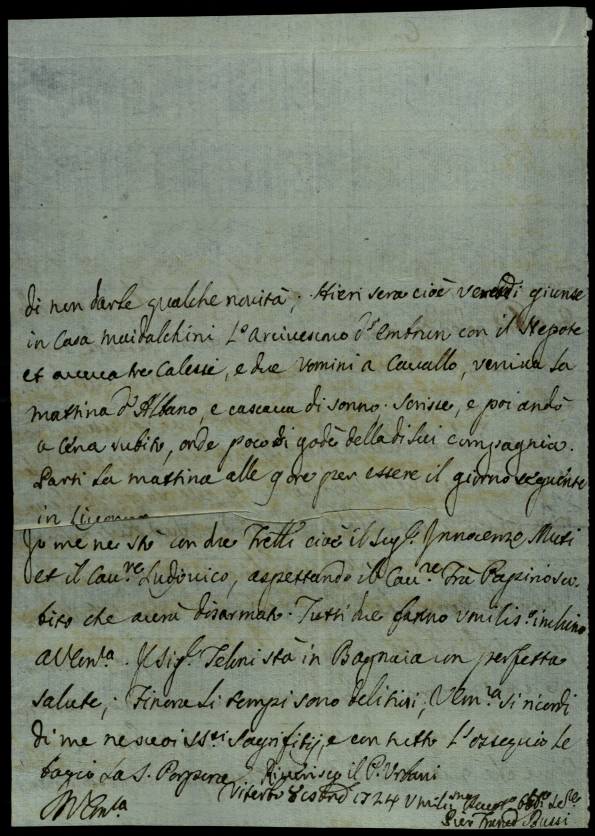 di non darle qualche novità; Hieri sera cioè venerdi giunse
in Casa Maidalchini L'arcivescovo d'embrun con il Nepote
et aveva tre Calessi, e due Vomini a Cavallo, veniva la
mattina d'Albano, e cascava di sonno. Scrisse, e poi andò
a Cena subito, onde poco si godè della di lui compagnia.
Partì la mattina alle 9 ore per essere il giorno seguente
in
Jo me ne stò con due Fretti cioè il Sig.r Jnnocenzo Muti
et il Cau.re Ludovico, aspettando il Cau.re Frà Papirio su-
bito che averà disarmato. Tutti due fanno vmiliss.o inchino
a VEm.za. Jl Sig.r stà in Bagnaia con perfetta
salute; Finora li tempi sono delitiosi, VEm.za si ricordi
di me ne suoi SS.mi Sagrifitij, e con tutto L'ossequio le
bagio La S. Porpora. Riverisco il P. Vrbani
VEm.za Viterbo 1724 Vmiliss.mo
Pier Franc.o Bussi